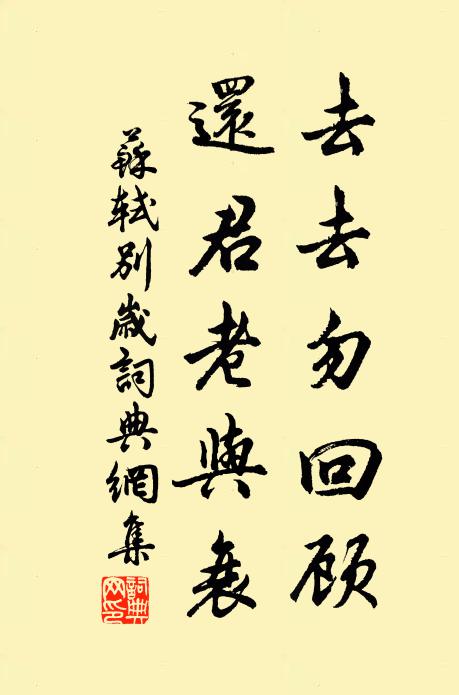 去去勿回顾
還君老與衰
蘇軾别歲詞典網集
詞典网印